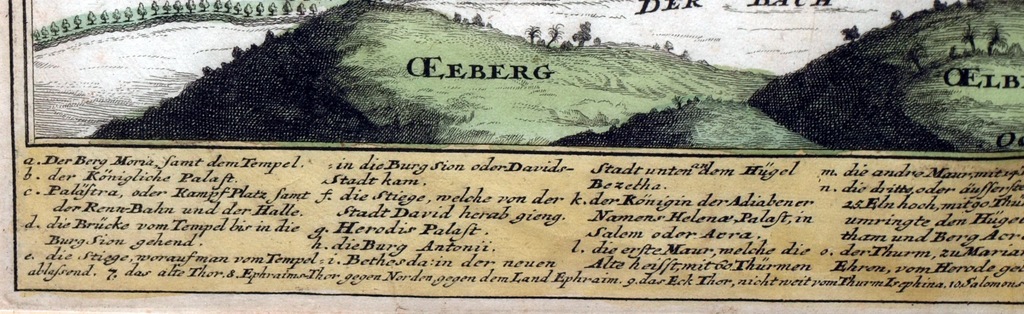 DER BACH
ŒEBERG
ŒLB
a. Der Berg Moria, samt dem Tempel.
b. der Königliche Palast.
c. Palästra, oder Kampf Platz samt
der Renn-Bahn und der Halle.
d. die Brücke vom Tempel bis in die
Burg Sion gehend.
e. die Stiege, worauf man vom Tempel
in die Burg Sion oder Davids-
Stadt kam.
f. die Stiege, welche von der
Stadt David herab gieng.
g. Herodis Palast.
h. die Burg Antonii.
i. Bethesda: in der neuen
Stadt unten an dem Hügel
Bezetha.
k. der Königin der Adiabener
Namens Helenæ, Palast, in
Salem oder Acra.
l. die erste Maur, welche die
Alte heisst, mit 60. Thürmen
m. die andre Maur, mit 14
n. die dritte, oder äusserste
25. Eln hoch, mit 90. Thür
umringte den Hüge
tham und Berg Acr
o. der Thurm, zu Maria
Ehren, vom Herode ge
ablassend. 7. das alte Thor. 8. Ephraims-Thor gegen Norden, gegen dem Land Ephraim. 9. das Eck Thor, nicht weit vom Thurm Psephina. 10. Salomons